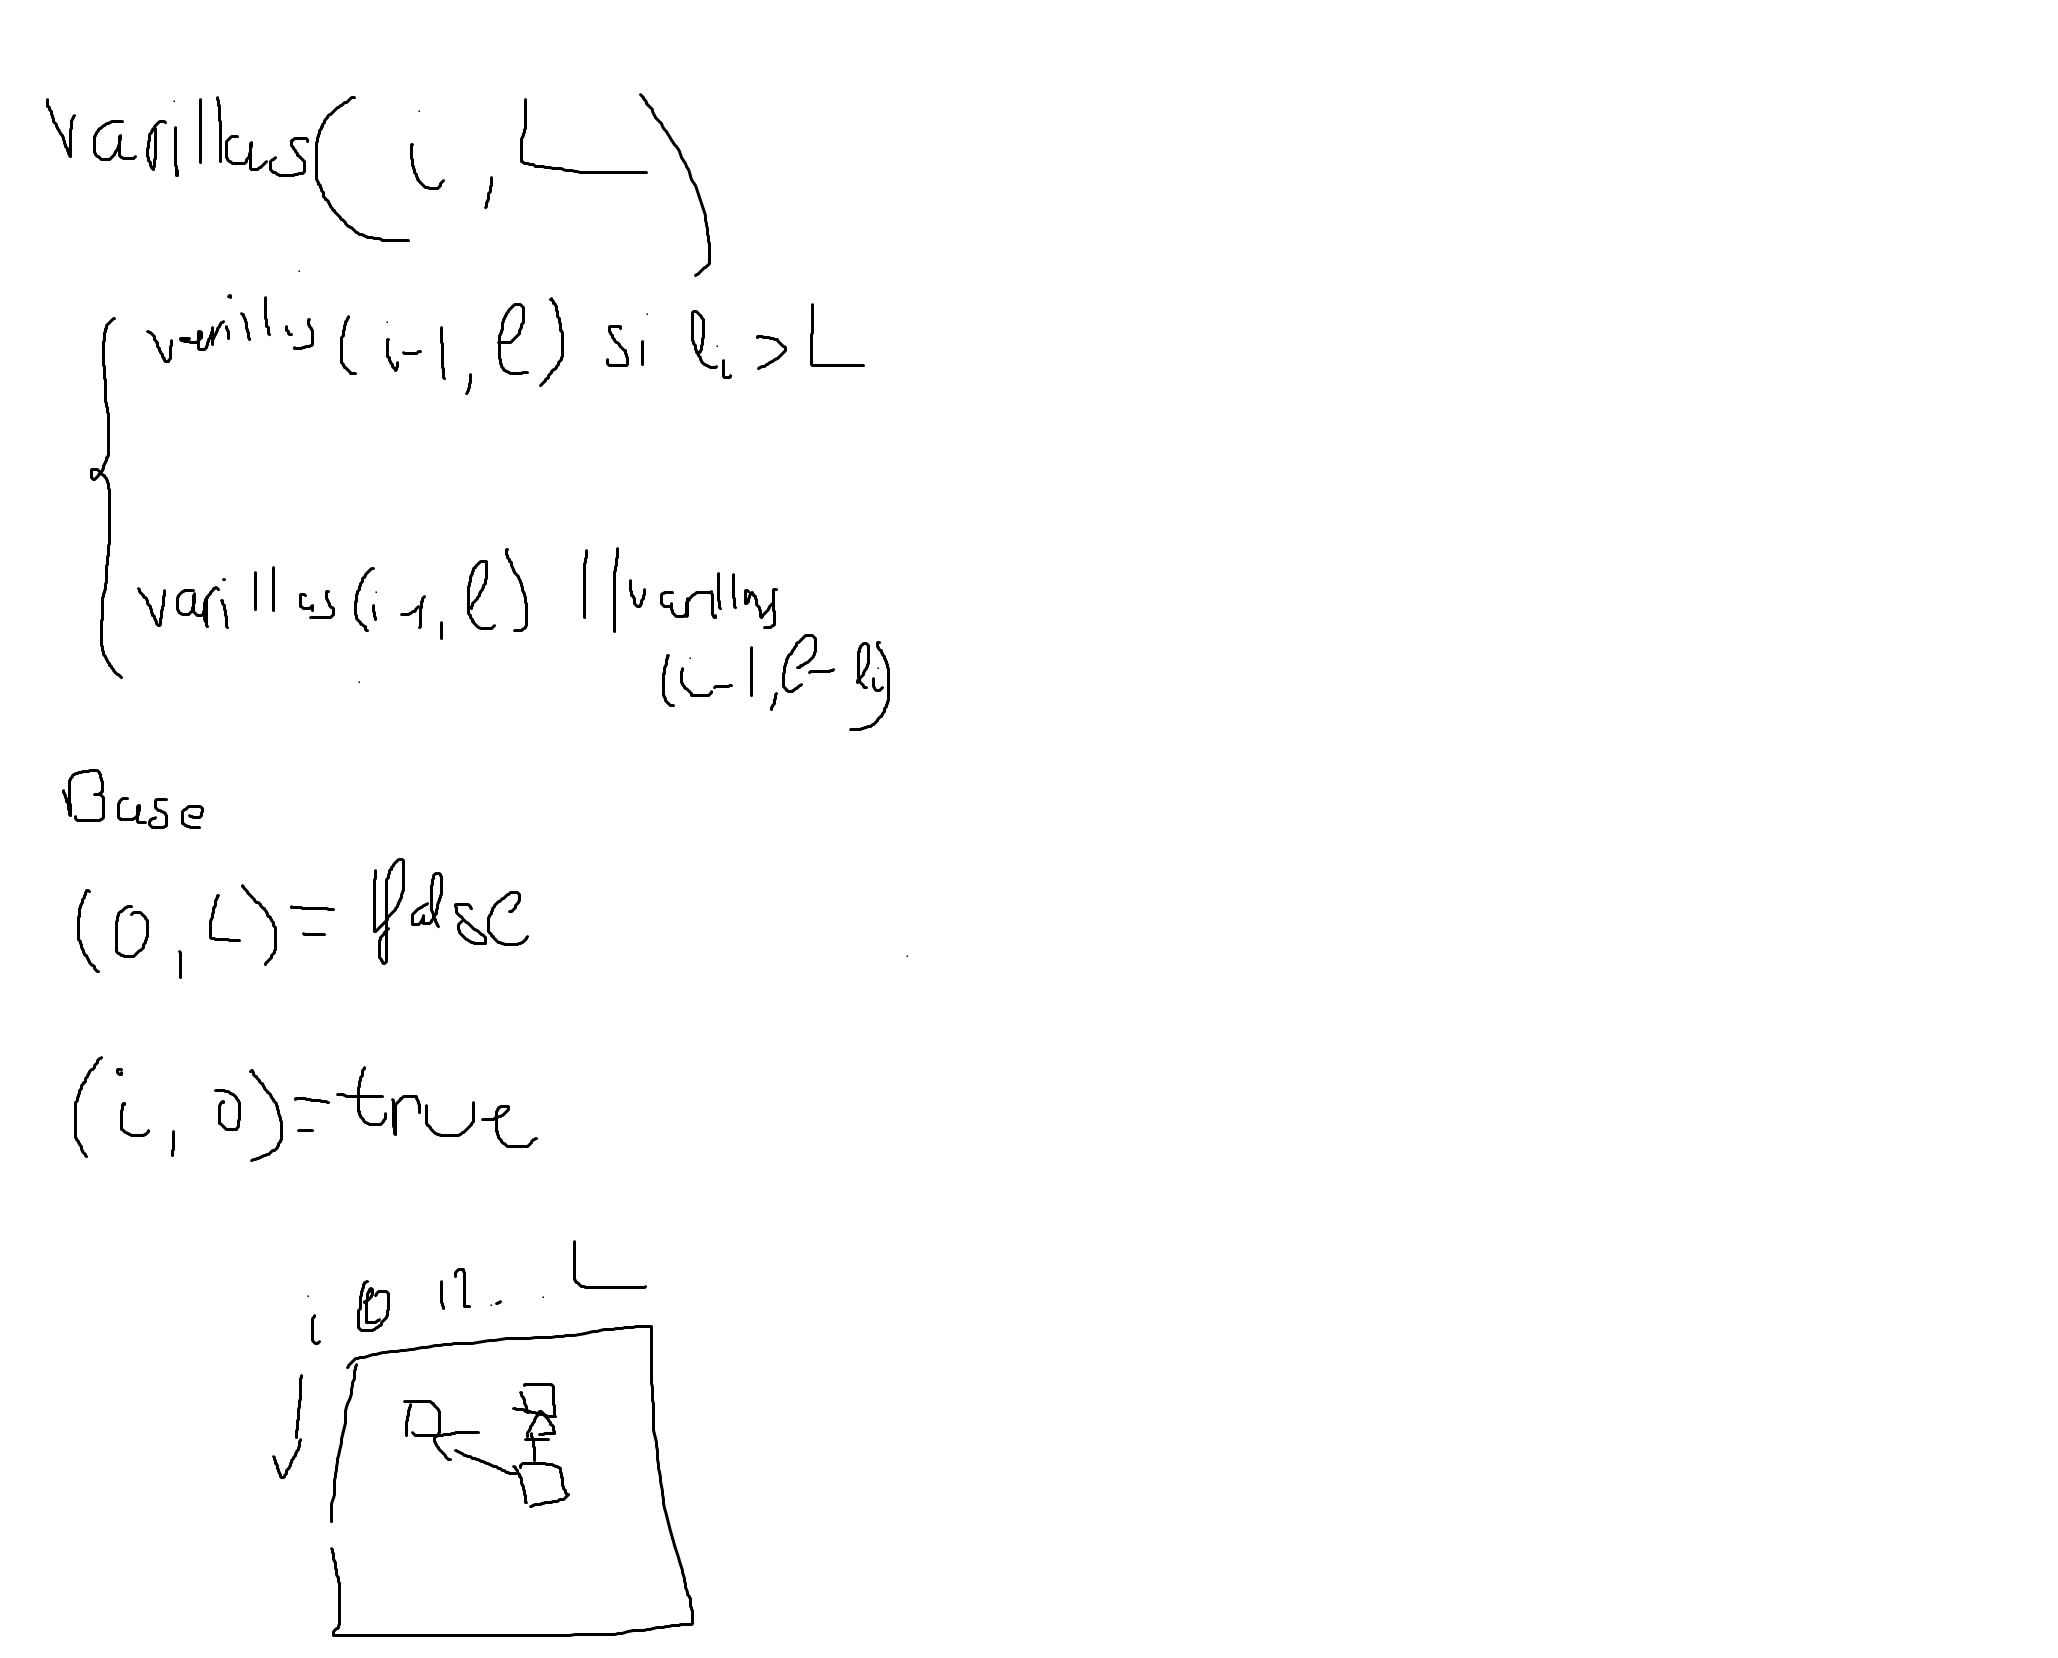 varillas(i, L)
varillas(i-1, l) si li > L
varillas(i-1, l) || varillas
(i-1, l-li)
Base
(0, L) = false
(i, 0) = true
i 0 12.. L